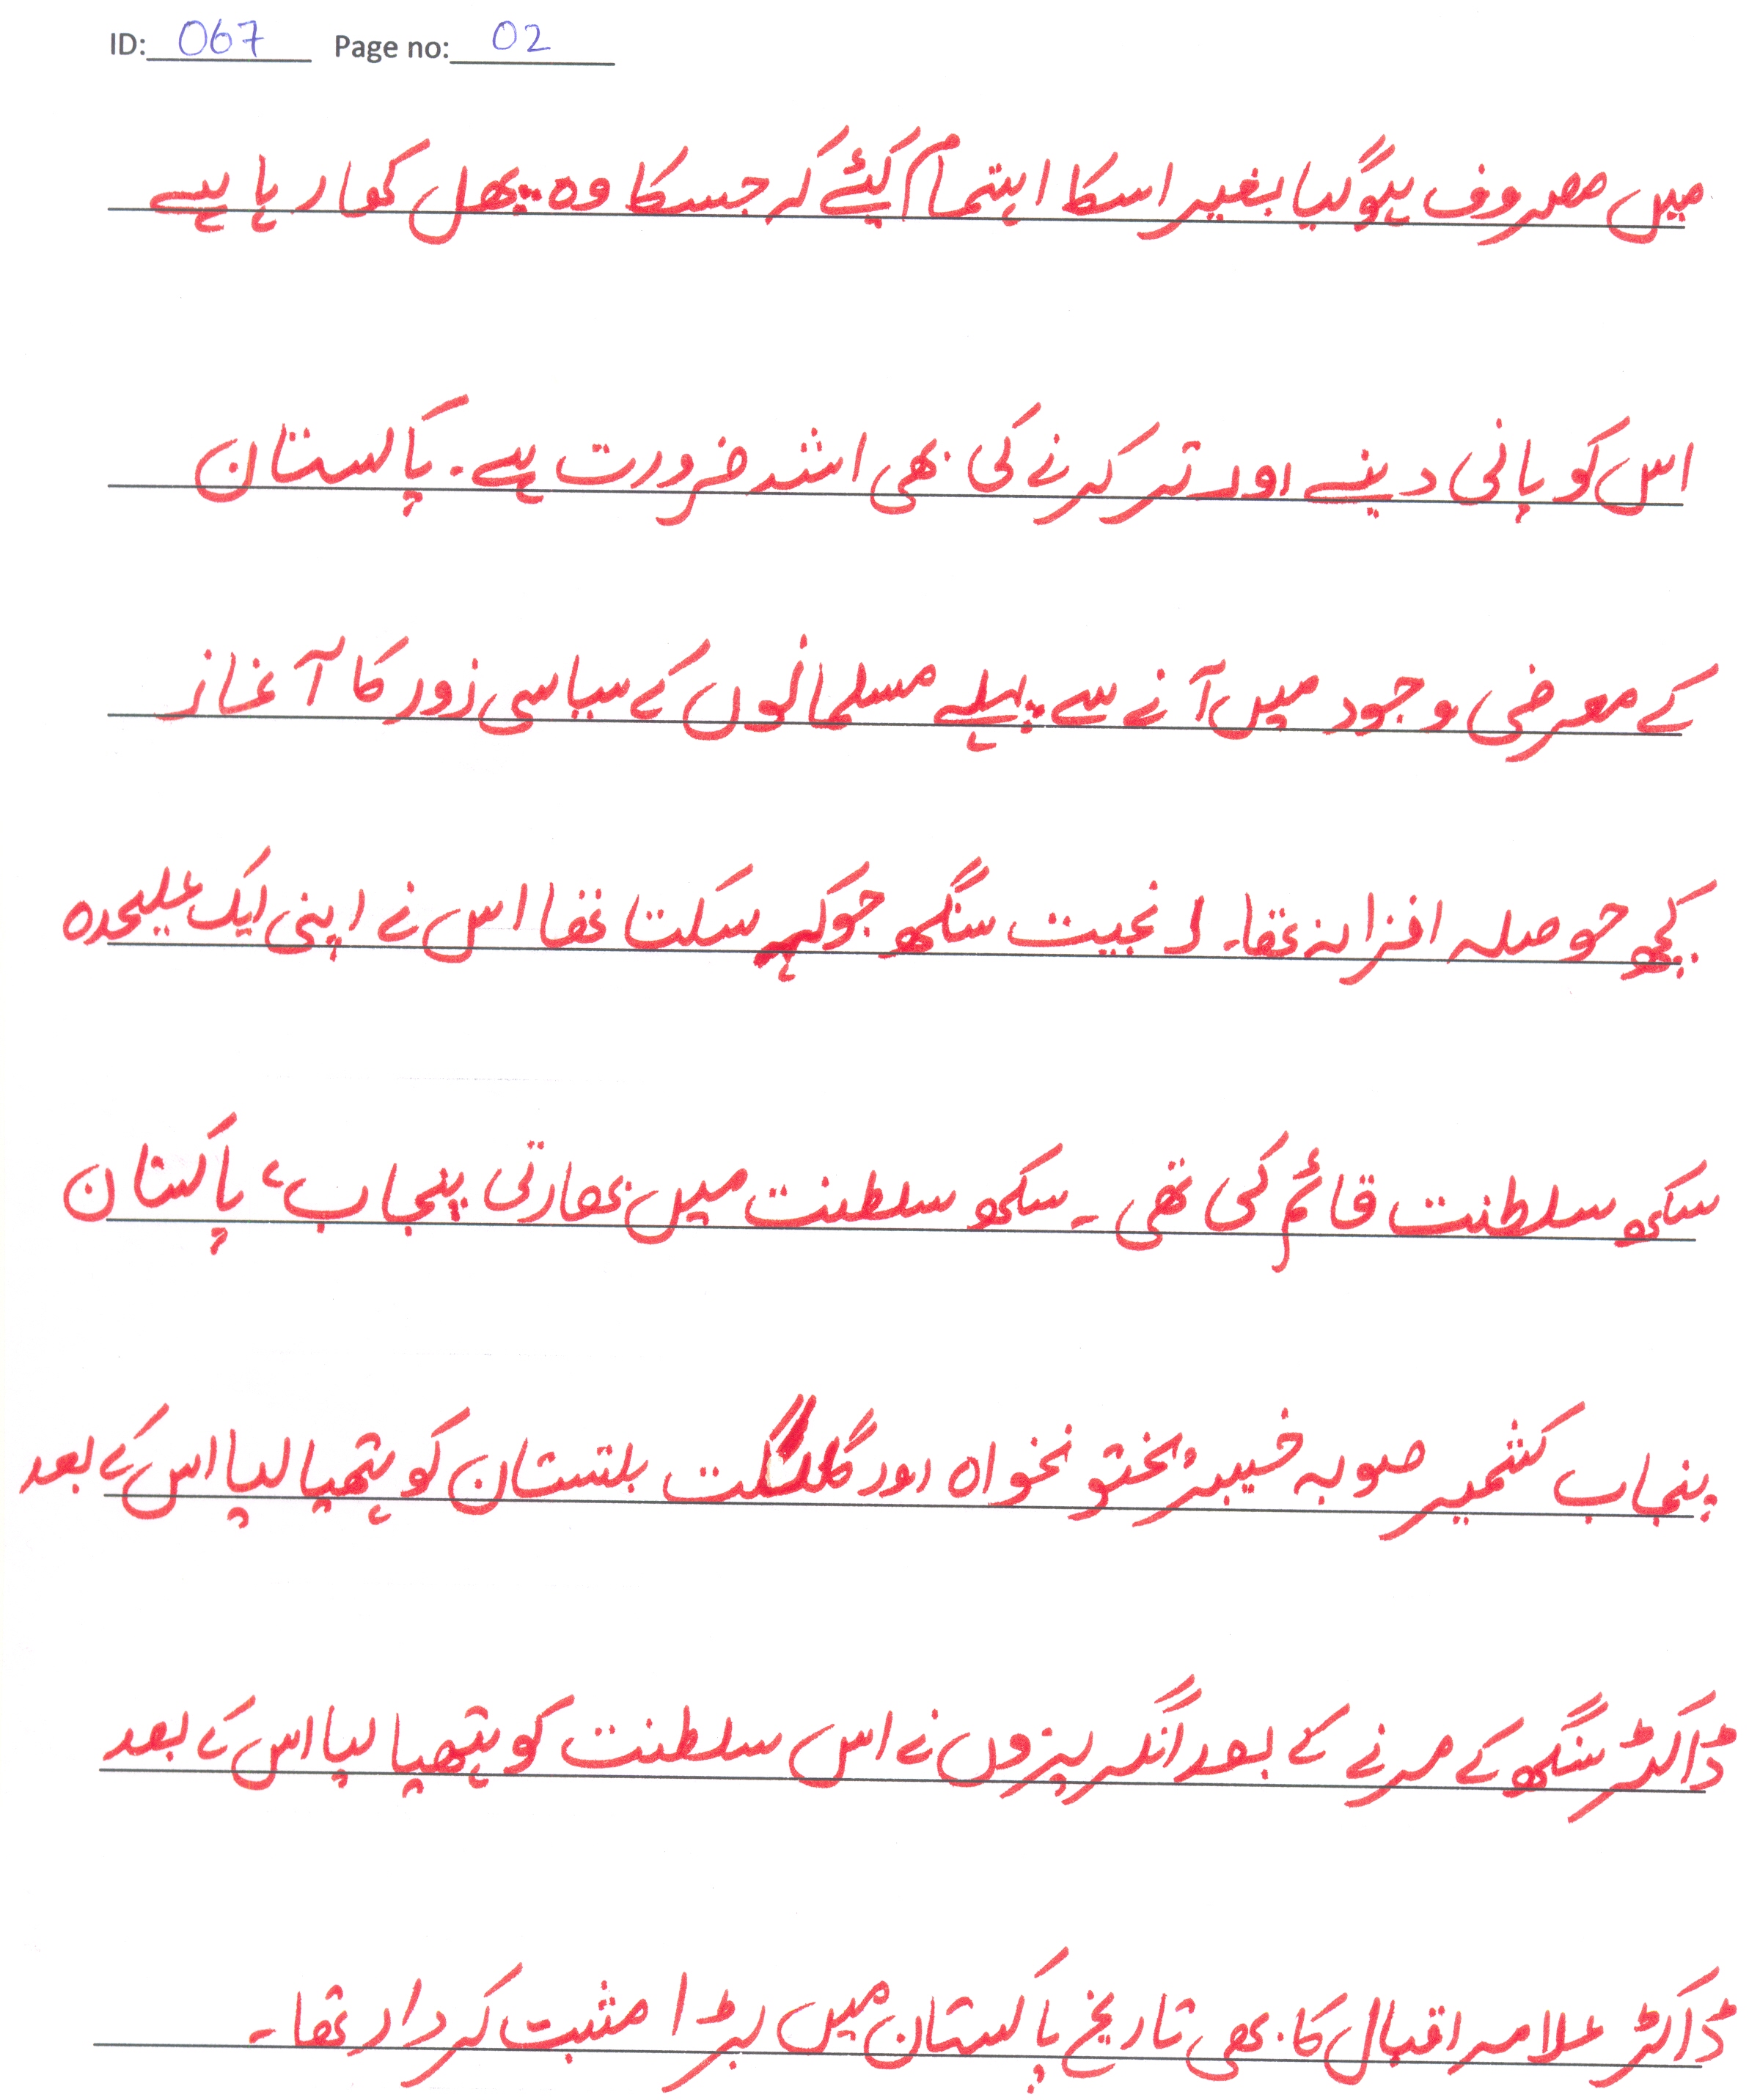 ID: 067 Page no: 02
میں مصروف ہوگیا بغیر اسکا اہتمام کیئے کہ جسکا وہ پھل کھا رہا ہے
اس کو پانی دینے اور تر کرنے کی بھی اشد ضرورت ہے۔ پاکستان
کے معرض وجود میں آنے سے پہلے مسلمانوں کے سیاسی زور کا آغاز
کچھ حوصلہ افزا نہ تھا۔ رنجیت سنگھ جوکہ سکتا تھا اس نے اپنی ایک علیحدہ
سکھ سلطنت قائم کی تھی ۔ سکھ سلطنت میں بھارتی پنجاب، پاکستان
پنجاب کشمیر صوبہ خیبر پختونخواہ اور گلگت بلتستان کو ہتھیا لیا اس کے بعد
ڈاکٹر سنگھ کے مرنے کے بعد انگریزوں نے اس سلطنت کو ہتھیا لیا اس کے بعد
ڈاکٹر علامہ اقبال کا بھی تاریخ پاکستان میں بڑا مثبت کردار تھا ۔